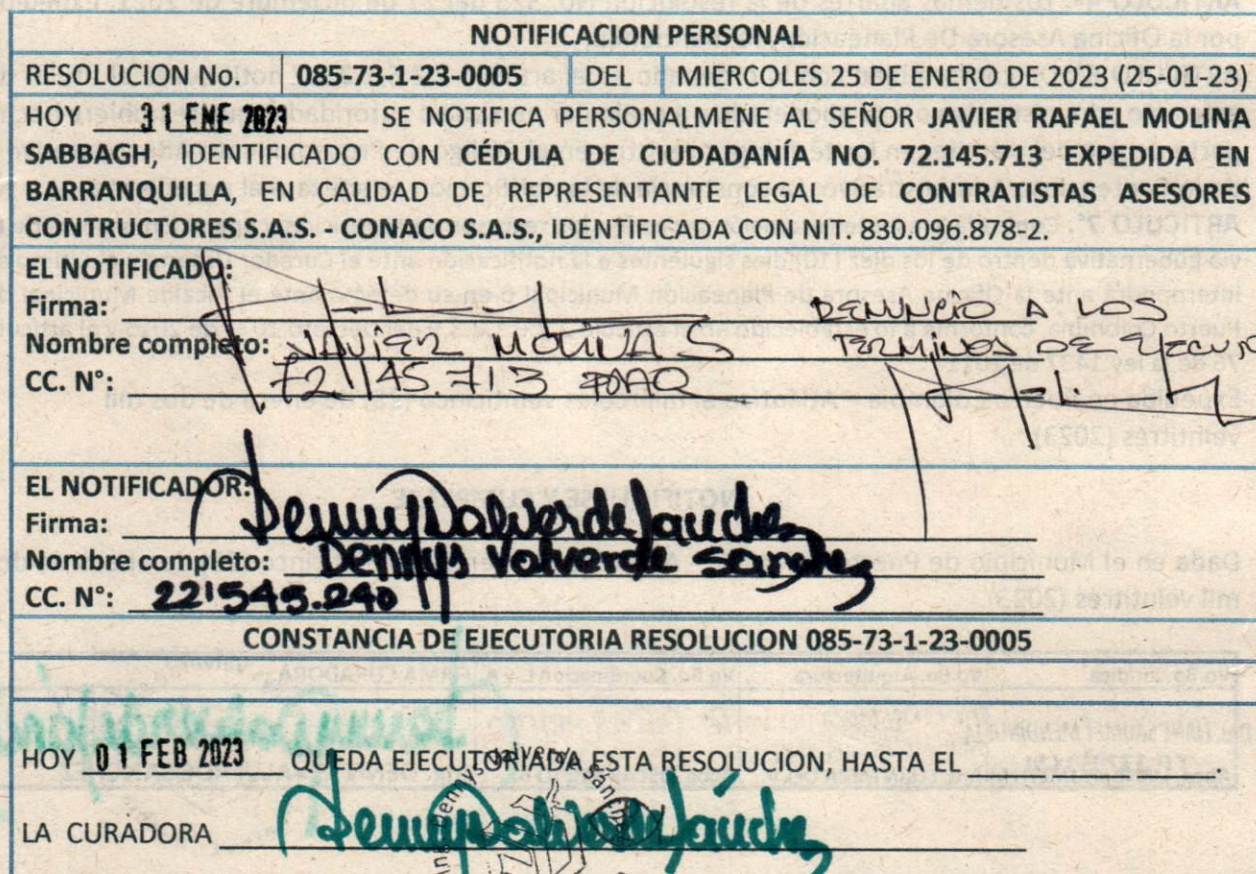 NOTIFICACION PERSONAL
RESOLUCION No. 085-73-1-23-0005 DEL MIERCOLES 25 DE ENERO DE 2023 (25-01-23)
HOY 31 ENE 2023 SE NOTIFICA PERSONALMEÑE AL SEÑOR JAVIER RAFAEL MOLINA
SABBAGH, IDENTIFICADO CON CÉDULA DE CIUDADANÍA NO. 72.145.713 EXPEDIDA EN
BARRANQUILLA, EN CALIDAD DE REPRESENTANTE LEGAL DE CONTRATISTAS ASESORES
CONTRUCTORES S.A.S. - CONACO S.A.S., IDENTIFICADA CON NIT. 830.096.878-2.
EL NOTIFICADO:
Firma:
Nombre completo: JAVIER MOLINA S
CC. N°: 72 145 713
RENUNCIO A LOS
TERMINOS DE
EL NOTIFICADOR:
Firma: Dennys Valverde Sanchez
Nombre completo: Dennys Valverde Sanchez
CC. N°: 22'545.240
CONSTANCIA DE EJECUTORIA RESOLUCION 085-73-1-23-0005
HOY 01 FEB 2023 QUEDA EJECUTORIADA ESTA RESOLUCIÓN, HASTA EL
LA CURADORA Dennys Valverde Sanchez
Dennys Valverde Sánchez